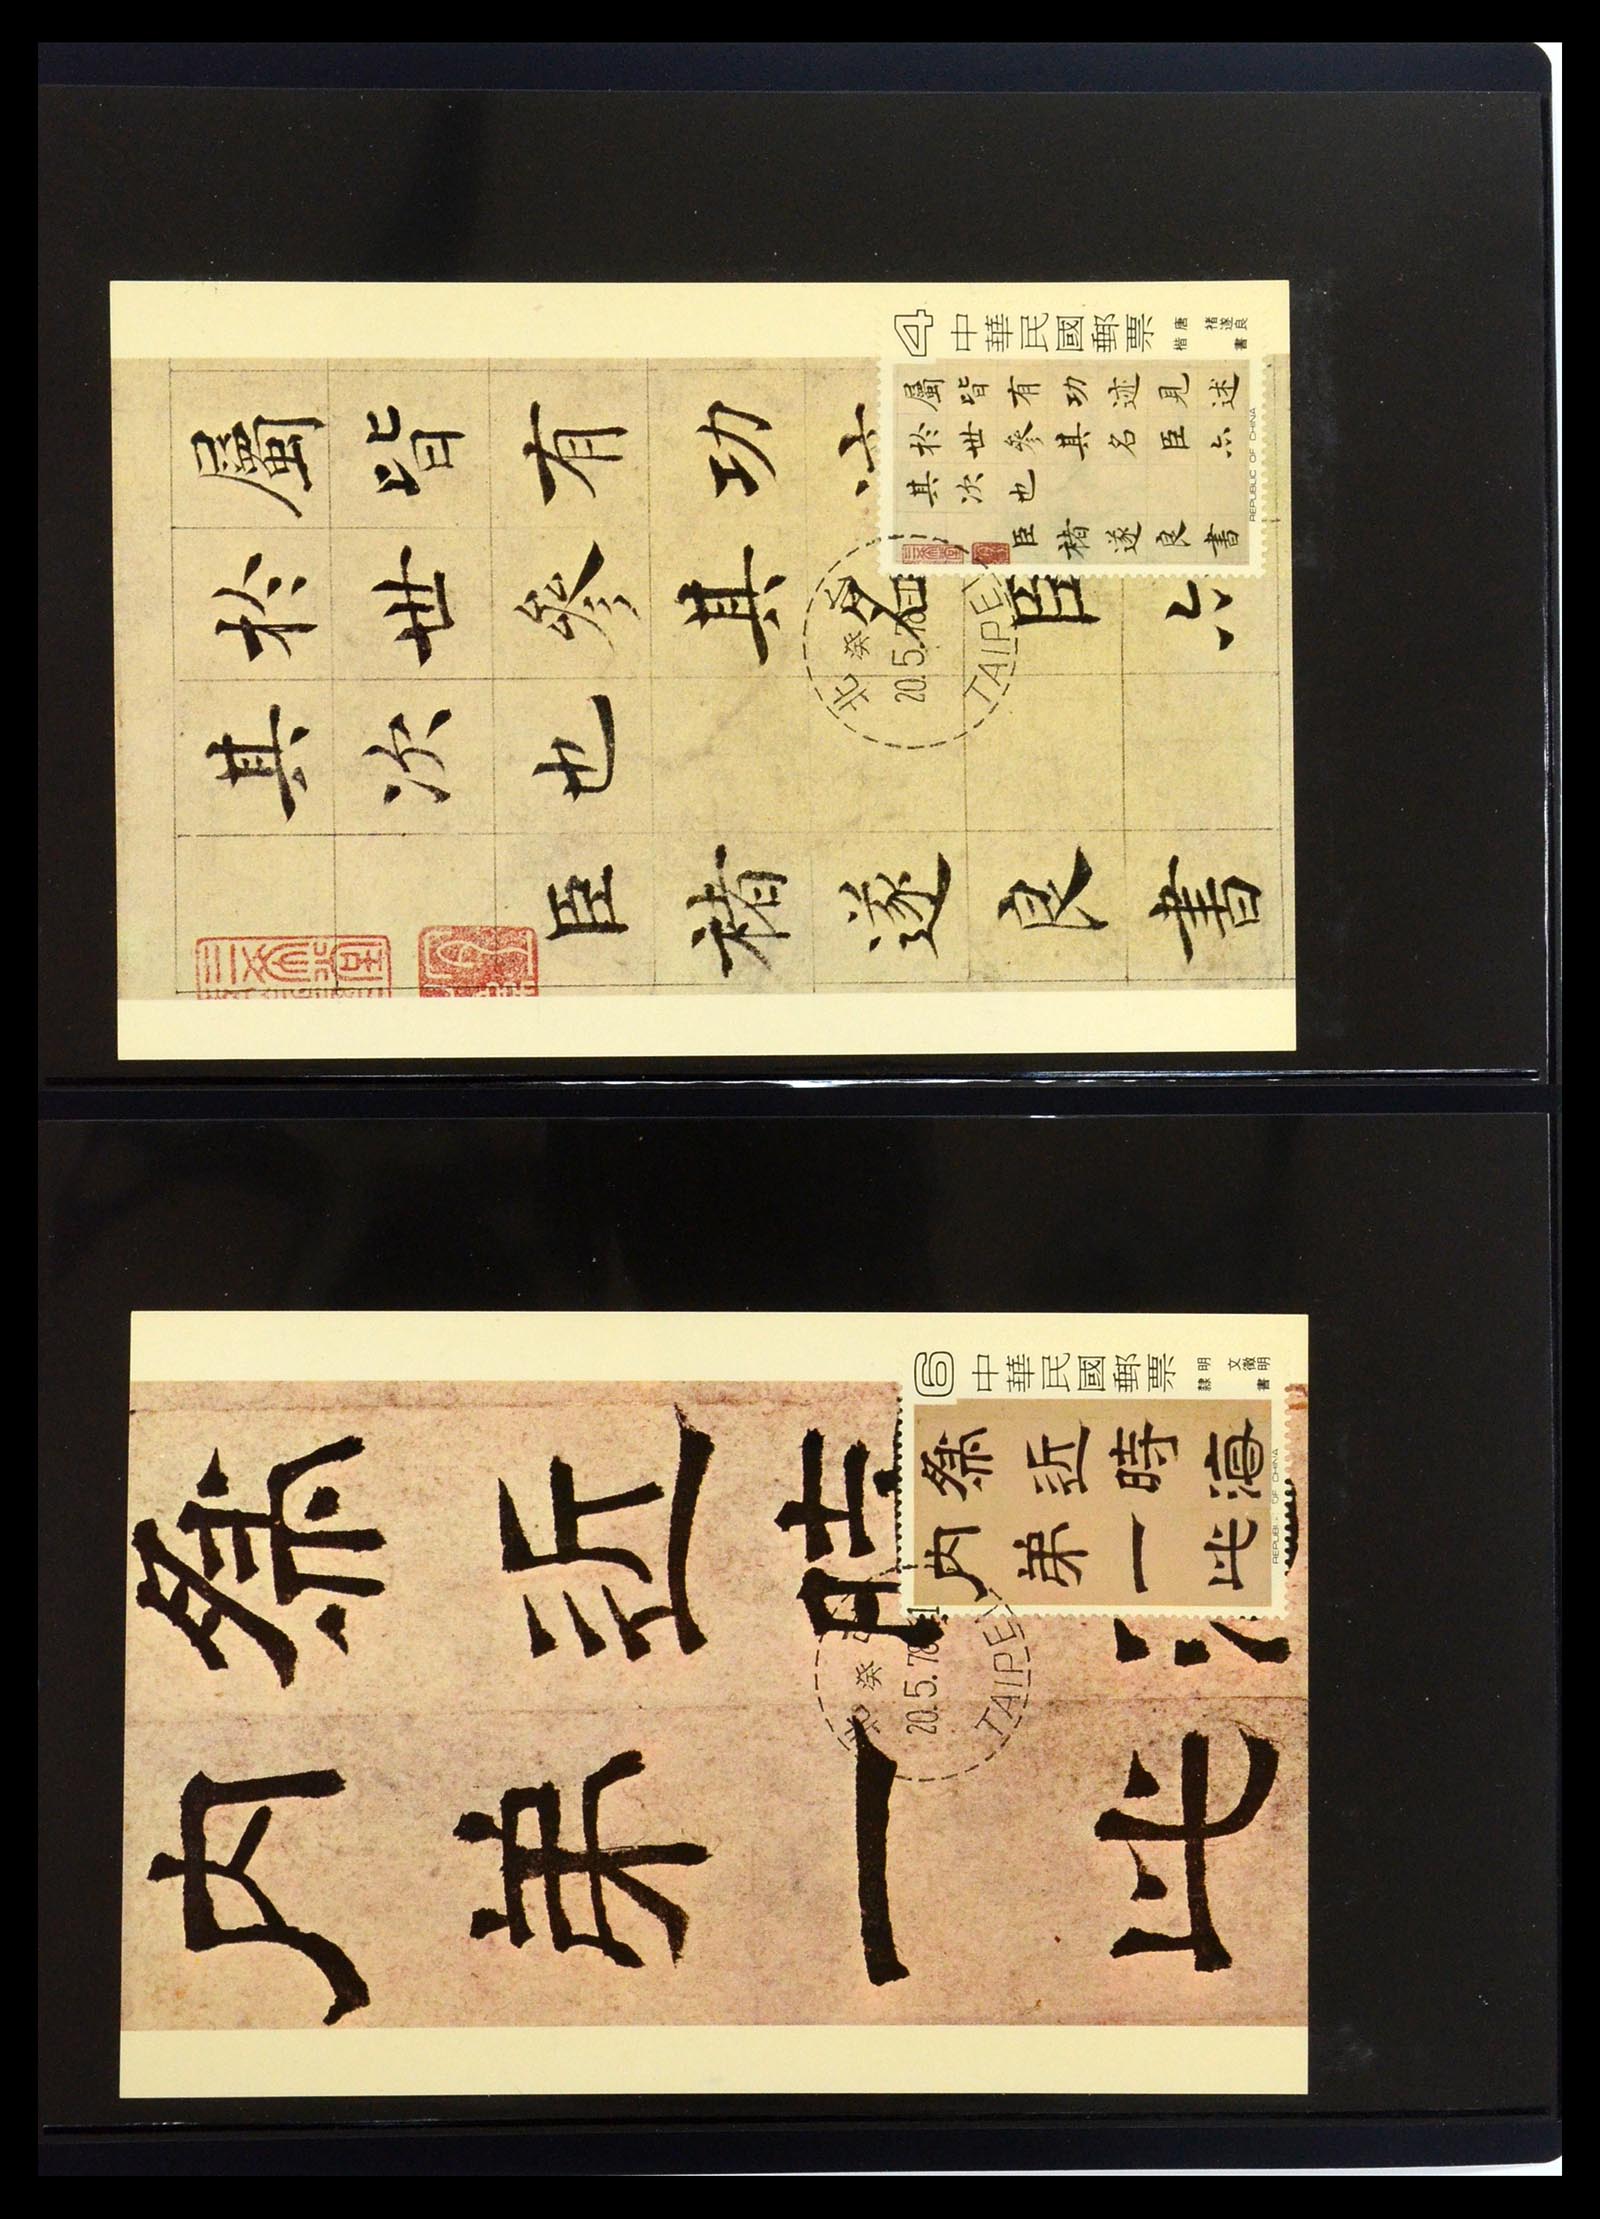 4 中華民國郵票 唐 褚遂良
楷 書
屬皆有功迹見述
於世參其名臣六
其次也
臣褚遂良書
REPUBLIC OF CHINA
屬皆有功
於世參其名臣六
其次也
臣褚遂良書
北 癸
20.5.78
TAIPEI
6 中華民國郵票 明 文徵明
隸 書
祭近時
内弟一此
REPUBLIC OF CHINA
祭近時
内弟一此
北 癸
20.5.78
TAIPEI